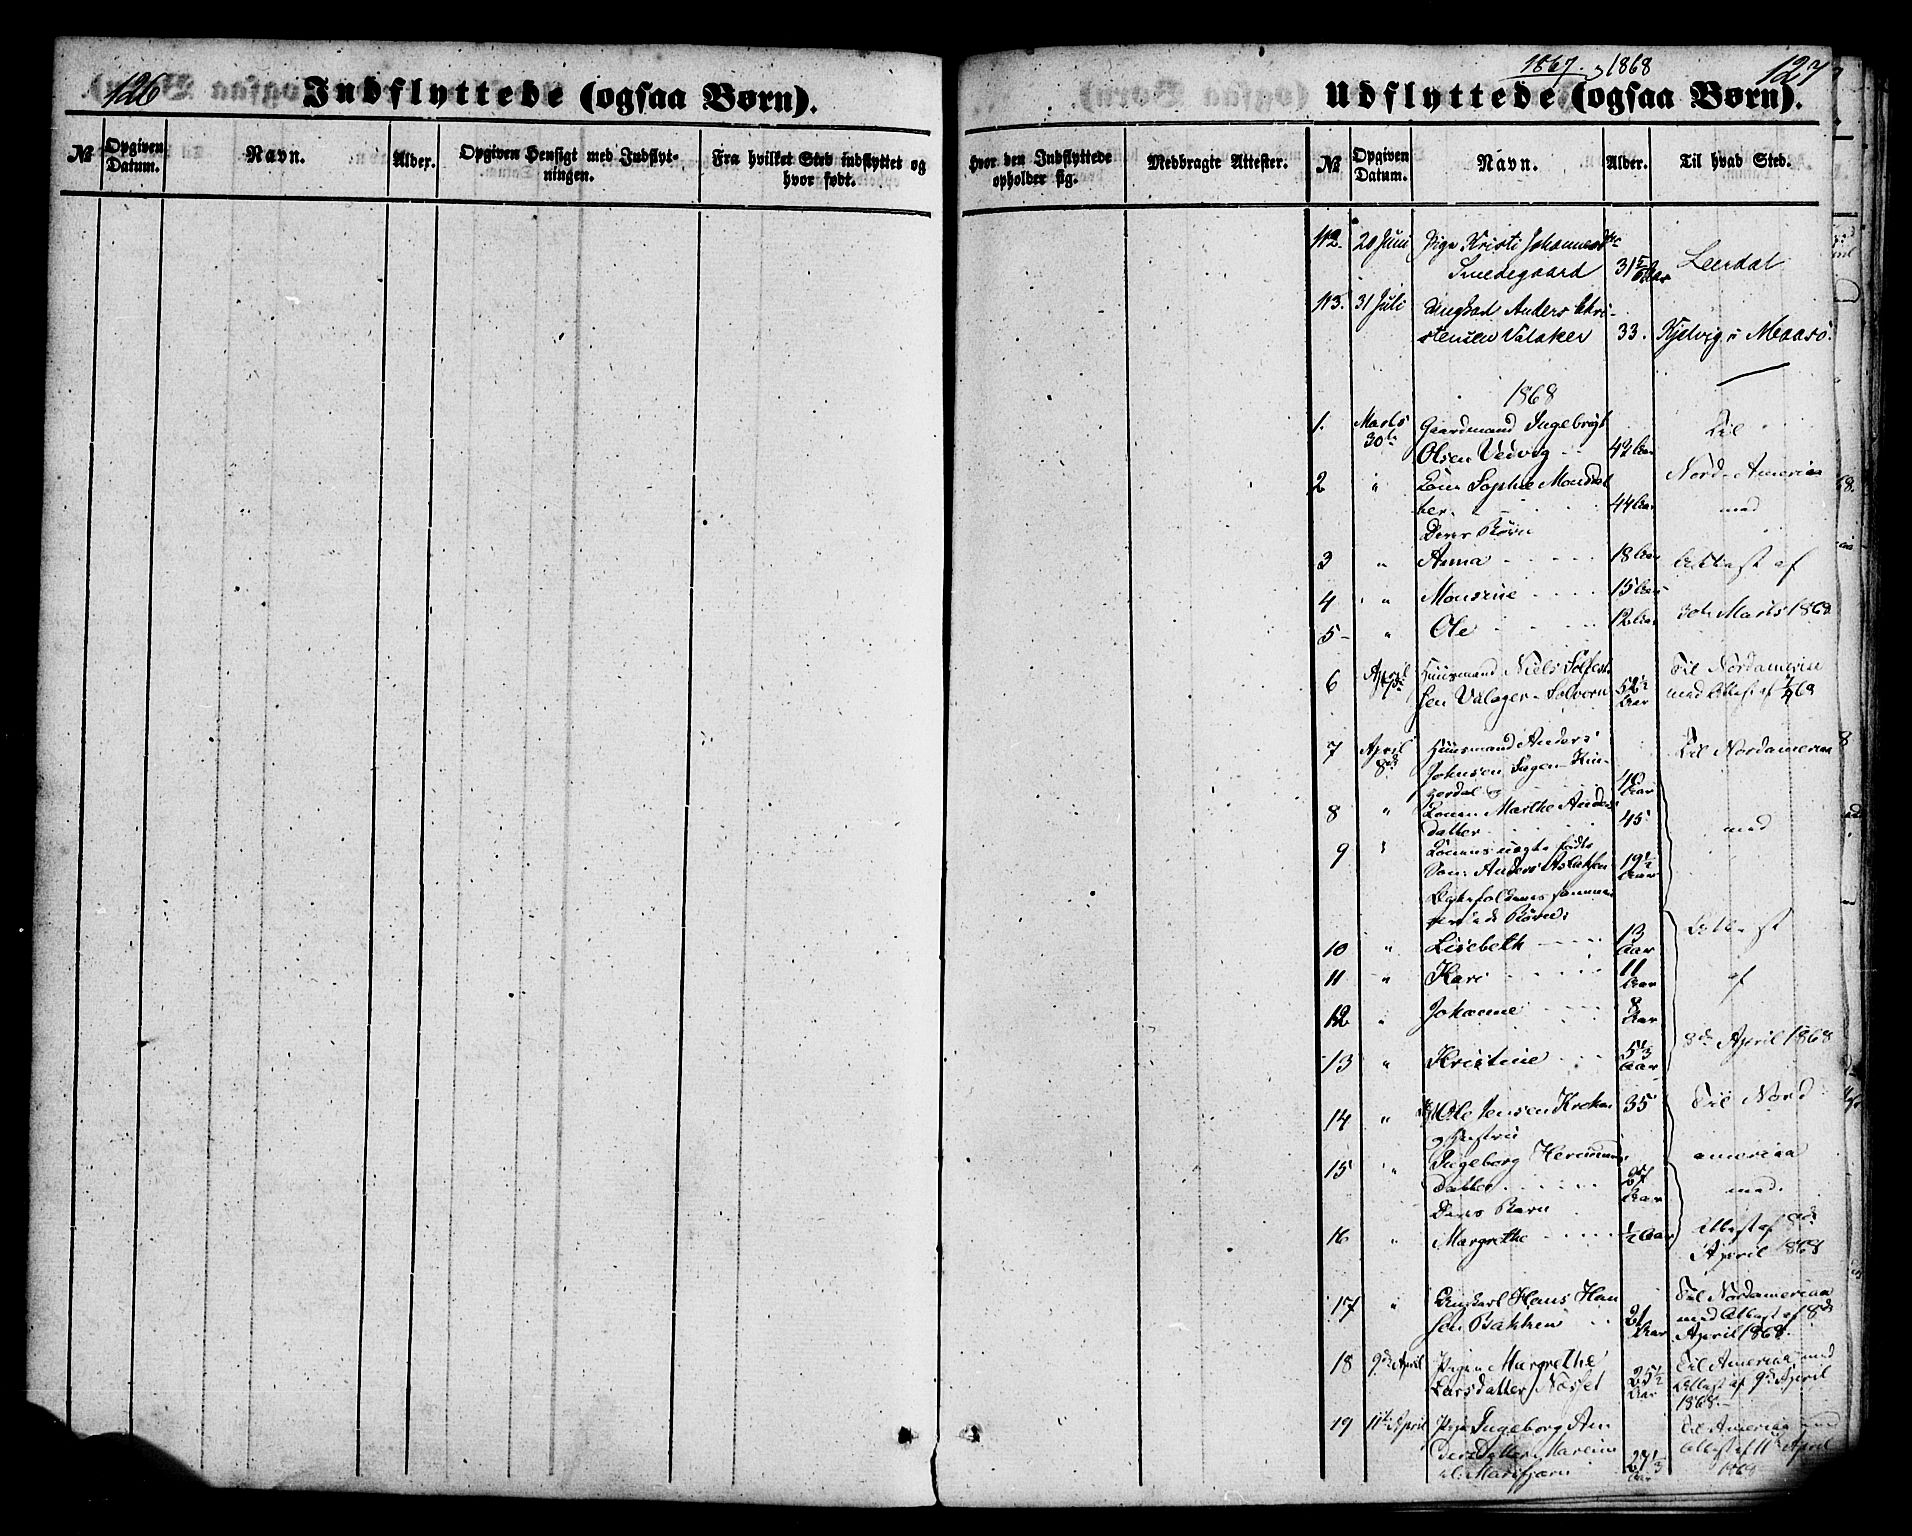 126
Indflyttede (ogsaa Børn).
№
Opgiven Datum.
Navn.
Alder.
Opgiven Hensigt med Indflyt-
ningen.
Fra hvilket Sted indflyttet og
hvor født.
1867 1868
127
Udflyttede (ogsaa Børn).
Hvor den Indflyttede
opholder sig.
Medbragte Attester.
№
Opgiven Datum.
Navn.
Alder.
Til hvad Sted.
112. 20 Juni Pige Kristi Johannesd
Smedegaard 31 Aar Leerdal
113. 31 Juli Ungkarl Anders Chri-
stensen Valaker 33. Kjelvig i Maasø.
1868
1. Marts 30te Gaardmand Ingebrigt Til
Olsen Vedvig 42 Aar
2 " Kone Sophie Monds Nord-Amerika
44 Aar med
Deres Børn
3 " Anna 18 Aar Attest af
4 " Monsine 15 Aar
5 " Ole 12 Aar 30te Marts 1868
6 April 7de Huusmand Niels Til Nordamerika
sen Valager Solvorn 52½ Aar med Attest af 7/4 68
7 April 8de Huusmand Anders Til Nordamerika
Johnsen 40 Aar
8 " Konen Marthe Anders
datter 45 med
9 " Konens uægte fødte
Søn: Anders Aslaksen 19½ Aar
Ægtefolkenes sammen
Børn:
10 " Lisebeth 13 Aar Attest
11 " Kari 11 Aar af
12 " Johanne 8 Aar
13 " Kristine 5⅓ Aar 8de April 1868
14 " Ole Jensen 35 Til Nord
og Hustru
15 " Ingeborg Hermunds amerika
datter Aar med
Deres Barn
16 " Margrethe ½ Aar Attest af 8de
April 1868
17 " Ungkarl Hans Han Til Nordamerika
sen Bakken 21 Aar med Attest af 8de
April 1868.
18 9de April Pigen Margrethe Til Amerika med
Larsdatter Næset 25½ Aar Attest af 9de April
1868.
19 11te April Pige Ingeborg An Til Amerika med
dersdatter Attest af 11te April
Marifjøren 27⅓ Aar 1868